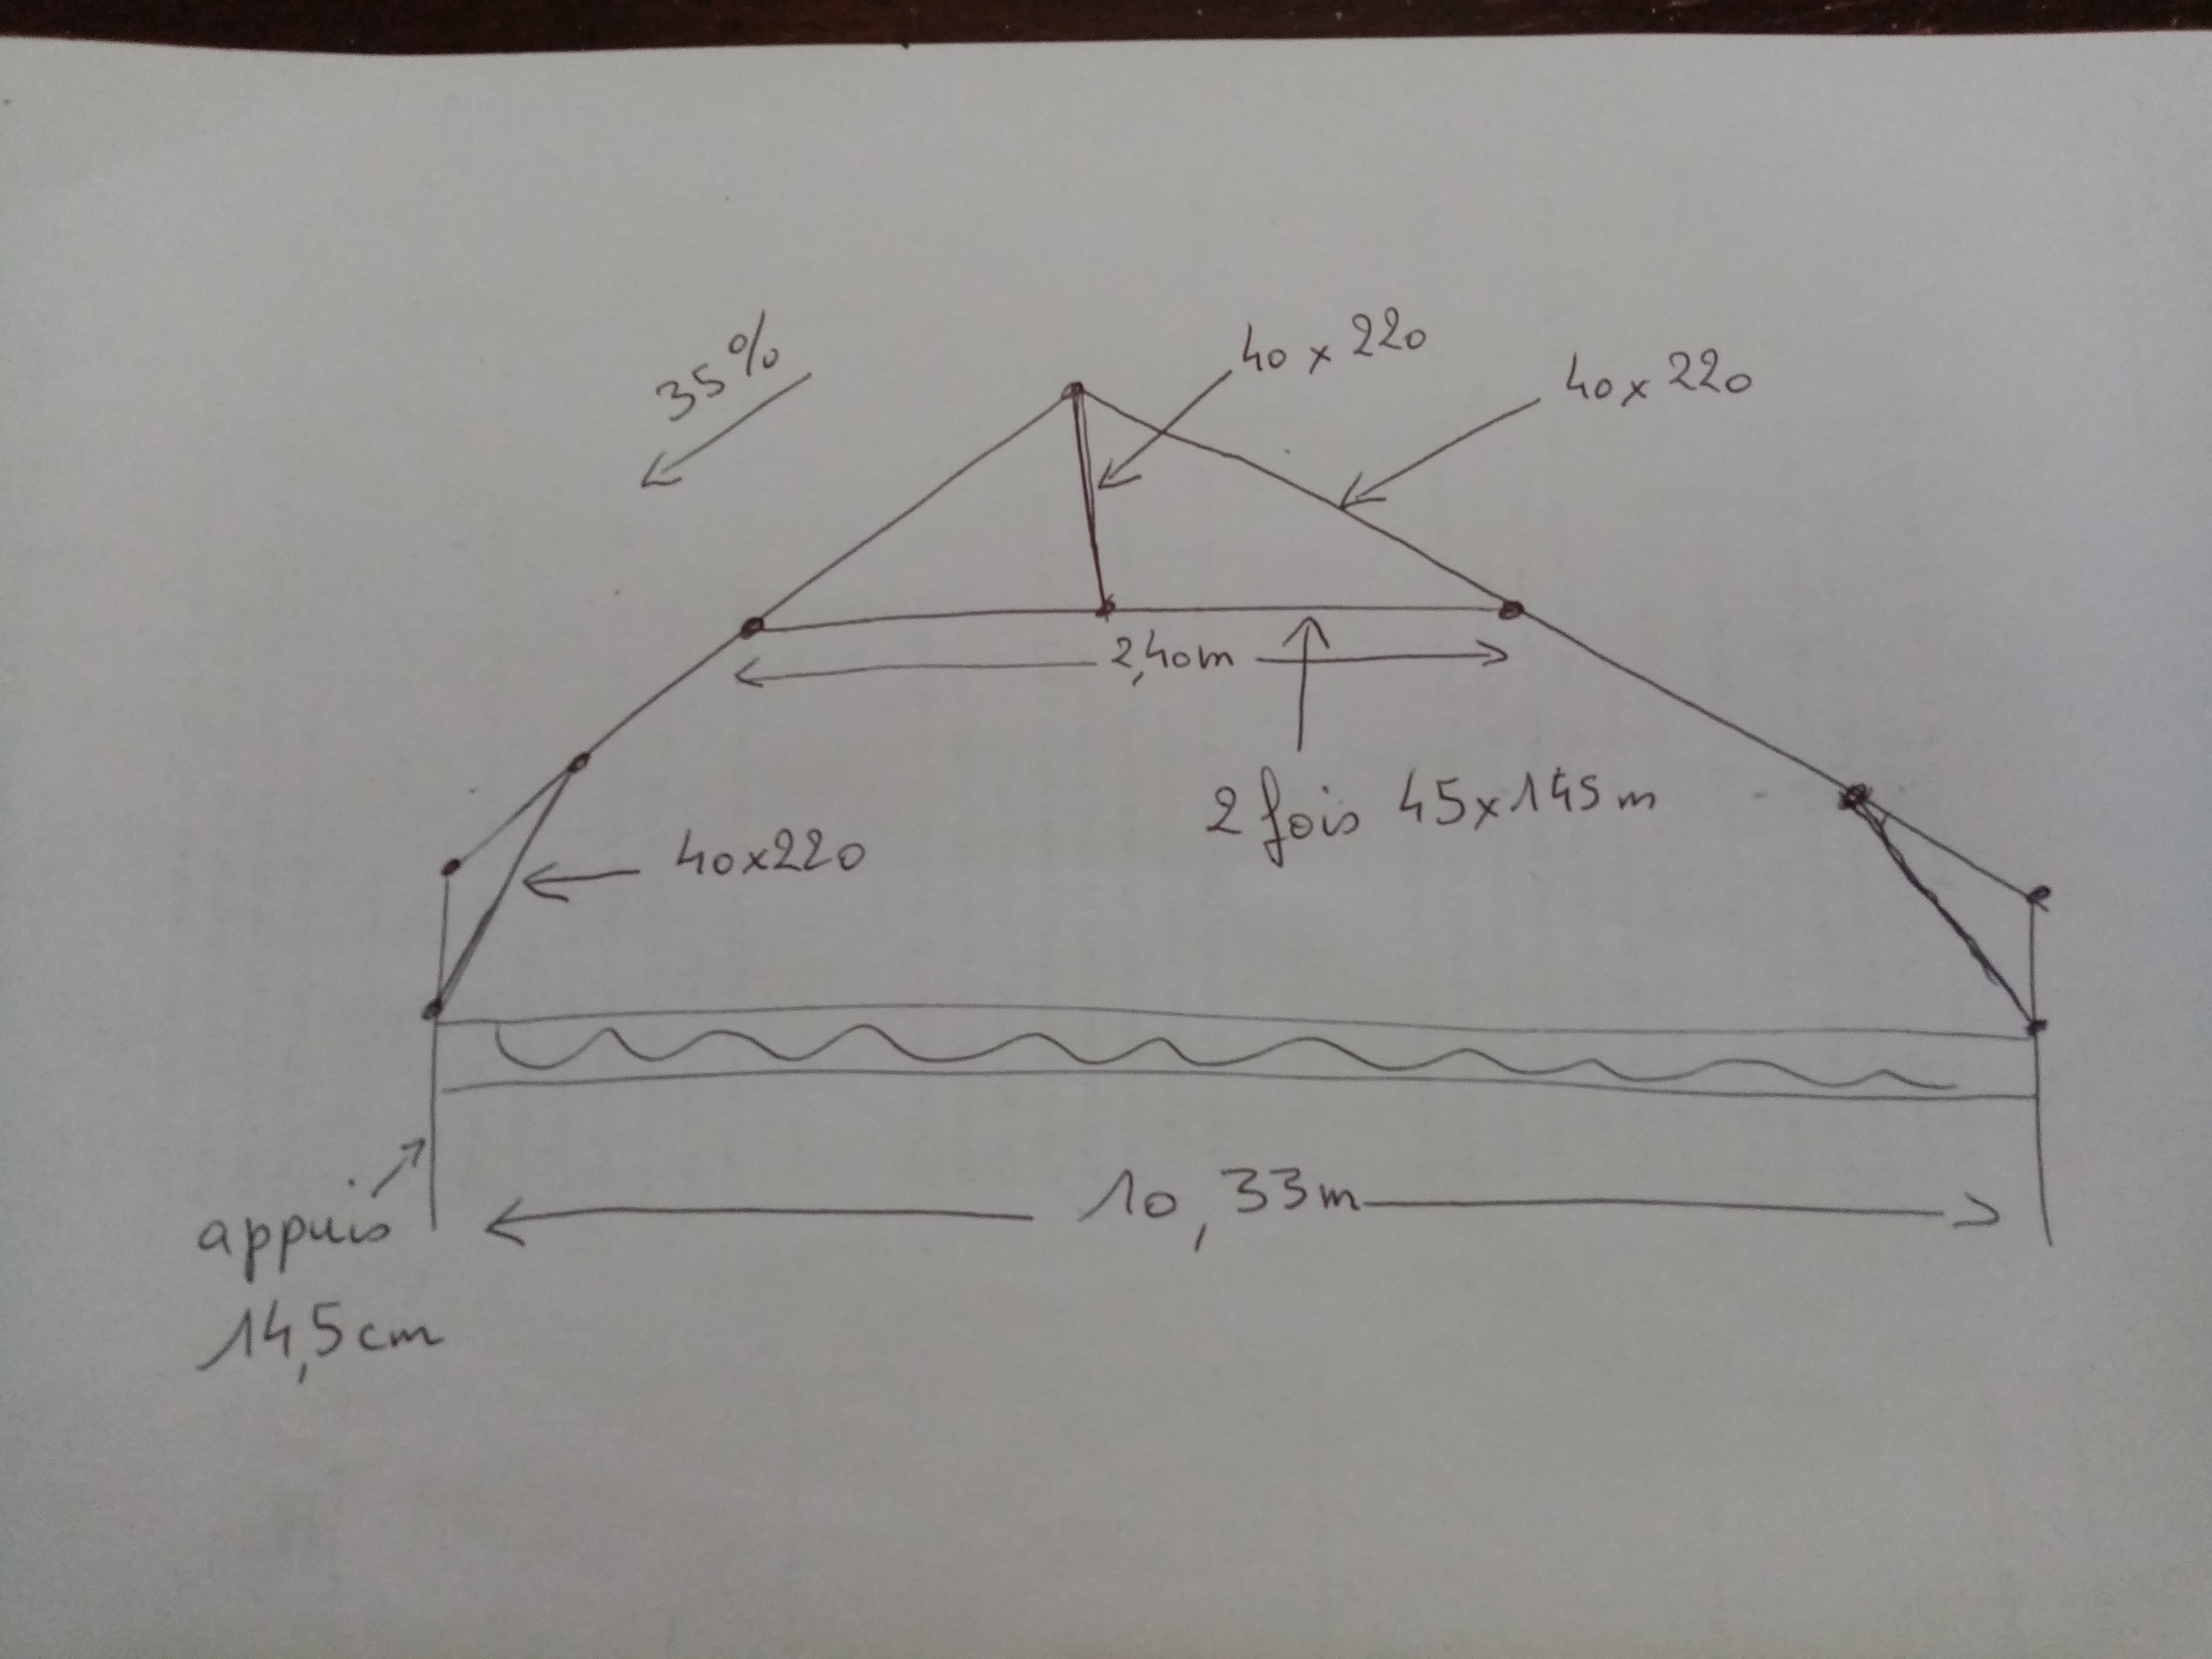 35%
40 x 220
40 x 220
2,40m
2 fois 45x145m
40x220
10,33m
appuis
14,5cm